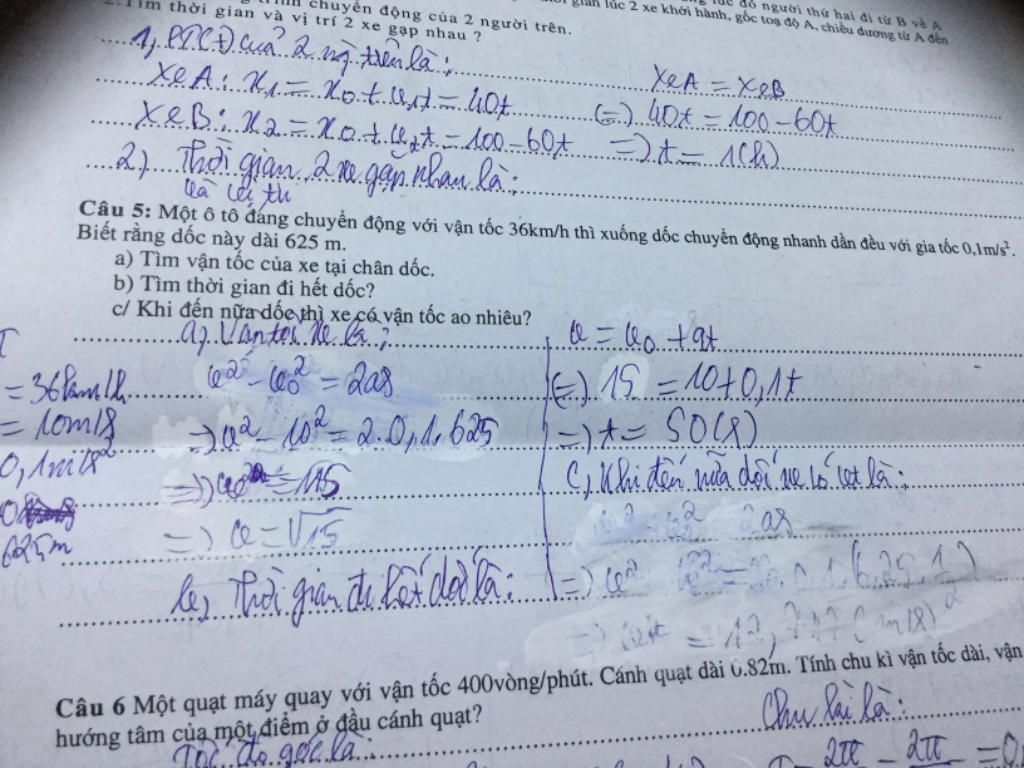 chuyển động của 2 người trên.
gian lúc 2 xe khởi hành, gốc toạ độ A, chiều dương từ A đến
đó người thứ hai đi từ B về A
2. Tìm thời gian và vị trí 2 xe gặp nhau ?
1, PTCĐ của 2 ng trên là:
xe A: x₁ = x₀ + v₁t = 40t
xe B: x₂ = x₀ + v₂t = 100 - 60t
2) Thời gian 2 xe gặp nhau là:
và vị trí
xe A = xe B
(=) 40t = 100 - 60t
=) t = 1(h)
Câu 5: Một ô tô đang chuyển động với vận tốc 36km/h thì xuống dốc chuyển động nhanh dần đều với gia tốc 0,1m/s².
Biết rằng dốc này dài 625 m.
a) Tìm vận tốc của xe tại chân dốc.
b) Tìm thời gian đi hết dốc?
c/ Khi đến nữa dốc thì xe có vận tốc ao nhiêu?
= 36km/h
= 10m/s
0,1m/s²
625m
a, Vận tốc xe là:
v² - v₀² = 2as
=) v² - 10² = 2.0,1.625
=) v = √15
b, Thời gian đi hết dốc là:
v = v₀ + at
(=) 15 = 10 + 0,1t
=) t = 50(s)
c, Khi đến nữa dốc xe có vt là:
2as
Câu 6 Một quạt máy quay với vận tốc 400vòng/phút. Cánh quạt dài 0.82m. Tính chu kì vận tốc dài, vận
hướng tâm của một điểm ở đầu cánh quạt?
Tốc độ góc là:
Chu kì là: